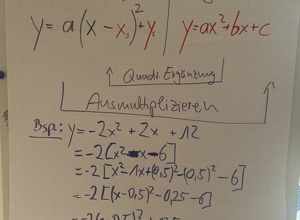 y = a(x - x_s)² + y_s | y = ax² + bx + c
Quadr. Ergänzung
Ausmultiplizieren
Bsp.: y = -2x² + 2x + 12
= -2[x² - x - 6]
= -2[x² - 1x + (0,5)² - (0,5)² - 6]
= -2[(x - 0,5)² - 0,25 - 6]